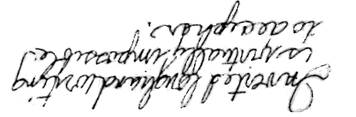 Inverted longhand writing
is virtually impossible
to decypher.